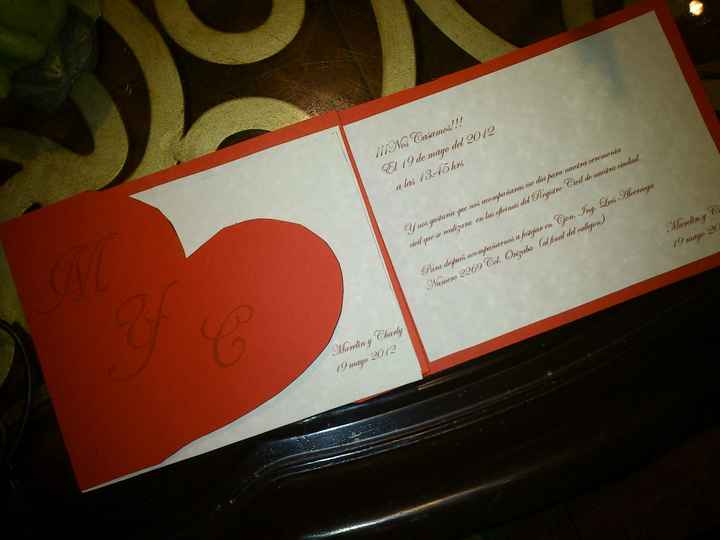 M
Y
C
Marelin y Charly
19 mayo 2012
¡¡¡Nos Casamos!!!
El 19 de mayo del 2012
a las 13:45 hrs.
Y nos gustaria que nos acompañaras ese dia para nuestra ceremonia
civil que se realizara en las oficinas del Registro Civil de nuestra ciudad.
Para después acompañarnos a festejar en Gon. Ing. Luis
Numero 2269 Col. Orizaba (al final del callejon)
Marelin y
19 mayo